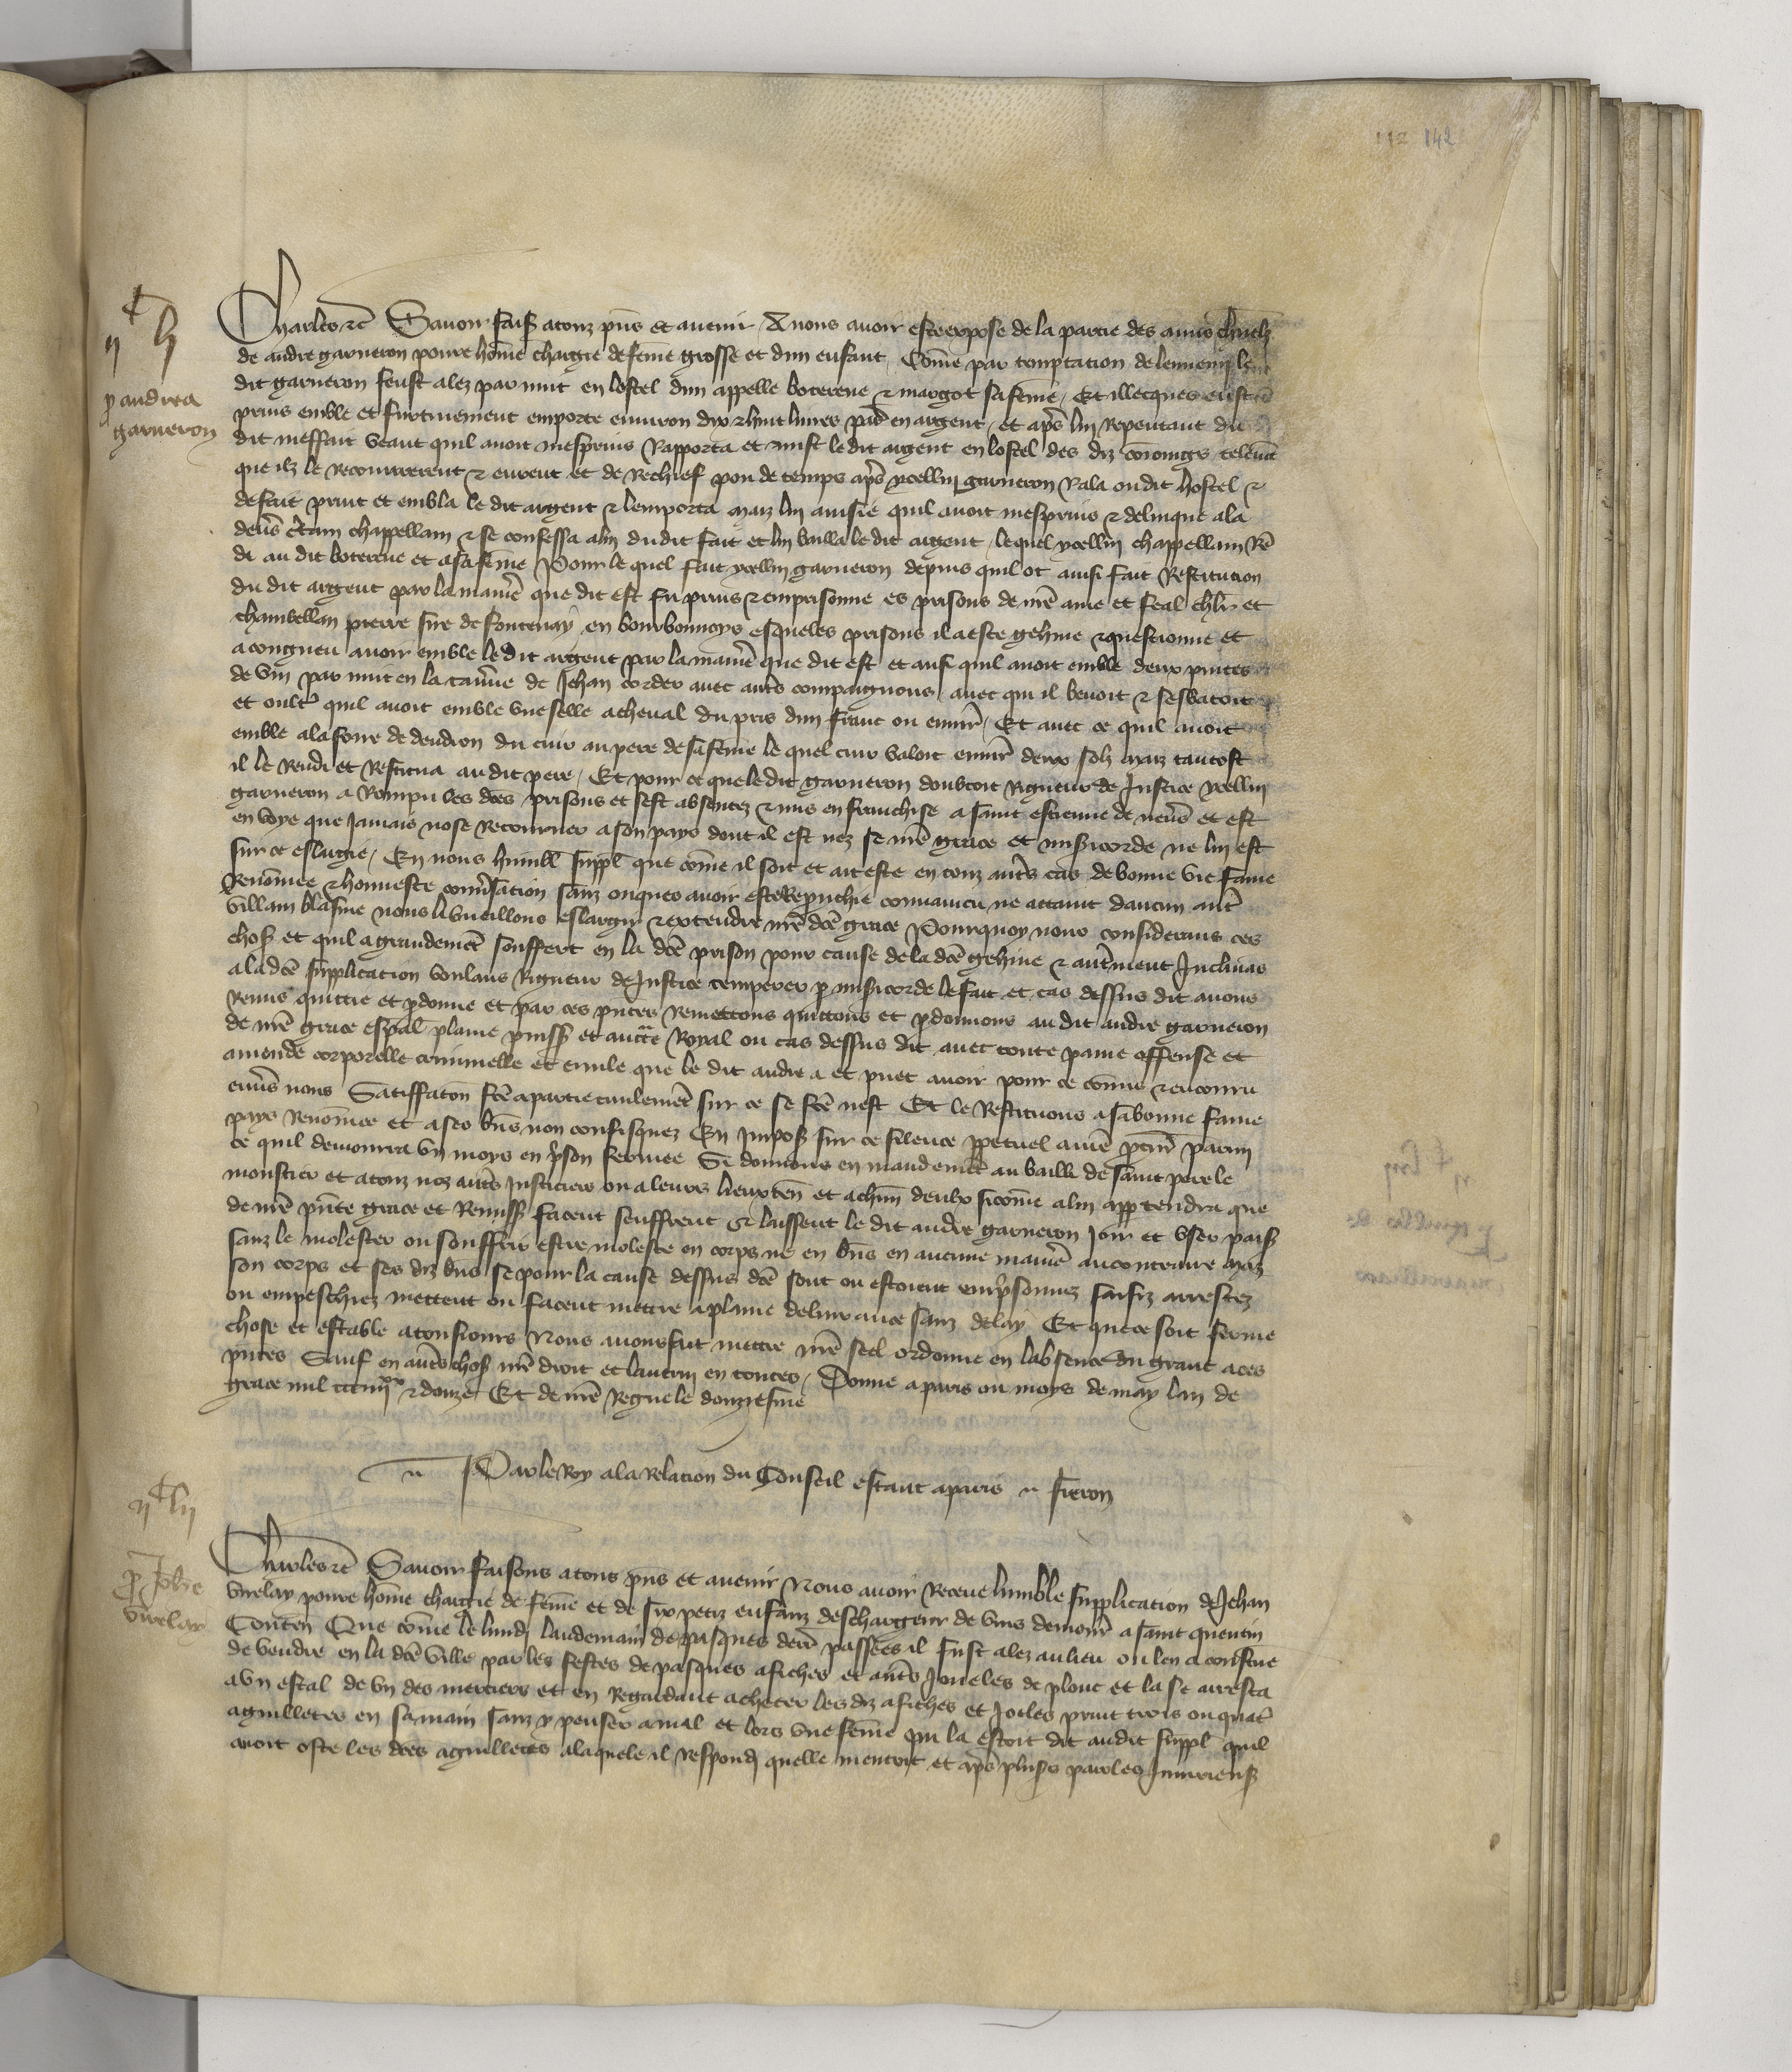 112 142
Charles etc Savoir faiss atouz pñs et avenir A nous avoir este expose de la partie des amis charnelz
de andre garneron povre hõme chargie de fẽme grosse et dun enfant Cõme par temptation de lennemi le
dit garneron feust alez par nuit en lostel dun appelle boterene et margot sa fẽme Et illecques eust
prins emble et furtivement emporte environ dix et huit livres par̃ en argent et apr̃s lui Repentant du
dit meffait veant quil avoit mespris Rapporta et mist le dit argent en lostel des diz cõioings telemẽt
que ilz le Recouvrerent et eurent et de Rechief pou de temps apr̃s ycellui garneron Rala oudit hostel et
de fait print et embla le dit argent et lemporta maiz lui avisie quil avoit mespris et delinque ala
devers cẽtain chappellain et se confessa alui dudit fait et lui bailla le dit argent lequel ycellui chappellain Rẽ
di au dit boterene et asa fẽme Pour le quel fait ycellui garneron depuis quil ot ainsi fait Restitution
du dit argent par la maniẽ que dit est fu prins et emprisonne es prisons de nr̃e ame et feal chlr̃ et
chambellan pierre sire de fontenay en bourbonnoys esqueles prisons il a este gehine et questionne et
a congneu avoir emble le dit argent par la maniẽ que dit est et ausi quil avoit emble deux pintes
de vin par nuit en la tav̾ne de Jehan corder avec autr̃s compaignons avec qui il bevoit et sesbatoit
et oultr̃ quil avoit emble une selle acheval du pris dun franc ou envir̃ Et avec ce quil avoit
emble ala foire de dendron du cuir au pere de sa fẽme le quel cuir valoit envir̃ deux solz maiz tantost
il le Rendi et Restitua au dit pere Et pour ce que le dit garneron doubtoit Rigueur de Justice ycellui
garneron a Rompu les dc̃es prisons et sest absentez et mis en franchise a saint estienne de nevers et est
en voye que Jamais nose Retourner a son pays dont il est nez se nr̃e grace et misericorde ne lui est
sur ce eslargie En nous humbl̃ suppl̃ que cõme il soit et ait este en touz autr̃s cas de bonne vie fame
Renõmee et honneste conv̾sation sanz onques avoir este Reprochie convaincu ne attaint daucun autr̃
villain blasme nous li vueillons eslargir et extendre nr̃e dc̃e grace Pourquoy nous considerans ces
choss et quil a grandemẽt souffert en la dc̃e prison pour cause de la dc̃e gehine et autr̃ment Inclinas
ala dc̃e supplication voulans Rigueur de Justice temperer p̃ misericorde le fait et cas dessus dit avons
Remis quittie et pdonne et par ces pñtes Remettons quittons et pdonnons au dit andre garneron
de nr̃e grace esp̃al plaine puiss et auct̃e Royal ou cas dessus dit avec toute paine offense et
amende corporelle criminelle et civile que le dit andre a et puet avoir pour ce cõmis et encouru
env̾s nous Satiffacõn fc̃e apartie civilemẽt sur ce se fc̃e nest Et le Restituons a sa bonne fame
pays Renõmee et a ses bñs non confisquez En Imposs sur ce silence ppetuel anr̃e pcur̃ parmi
ce quil demourra un moys en prison fermee Si donnons en mandemẽt au bailli de saint pere le
moustier et atouz noz autr̃s Justiciers ou a leurs lieuxten̾ et achũn deulx sicõme alui appartendra que
de nr̃e pñte grace et Remiss facent seuffrent et laissent le dit andre garneron Joir et user paisß
sanz le molester ou souffrir estre moleste en corps ne en bñs en aucune maniẽ au contraire maiz
son corps et ses diz bñs se pour la cause dessus dc̃e sont ou estoient emprisonnez saisiz arrestez
ou empeschiez mettent ou facent mettre aplaine delivrance sanz delay Et que ce soit ferme
chose et estable atousiours Nous avons fait mettre nr̃e seel ordonne en labsence du grant a ces
pñtes Sauf en autr̃s choss nr̃e droit et lautrui en toutes Donne a paris ou moys de may lan de
grace mil ccc iiiiˣˣ et douze Et de nr̃e Regne le douziesme
Par le Roy ala Relation du Conseil estant a paris freron
p andrea
garneron
Charles etc Savoir faisons atous pñs et avenir Nous avoir Receue humble supplication de Jehan
virelay povre hõme chargie de fẽme et de six petiz enfanz deschargeur de vins demour̃ a saint quentin
Conten̾ Que cõme le lundi landemain de pasques derr̃ passees il fust alez au lieu ou len a coustume
de vendre en la dc̃e ville par les festes de pasques afiches et autr̃s Joueles de plonc et la se arresta
a un estal de un des merciers et en Regardant acheter les diz afiches et Joiles print trois ou quatr̃
aguilletes en sa main sanz y penser a mal et lors une fẽme qui la estoit dit audit suppl̃ quil
avoit oste les dc̃es aguilletes alaquele il Respondi quelle mentoit et apr̃s plus̃s paroles Iniurieuss
p Johe
virelay